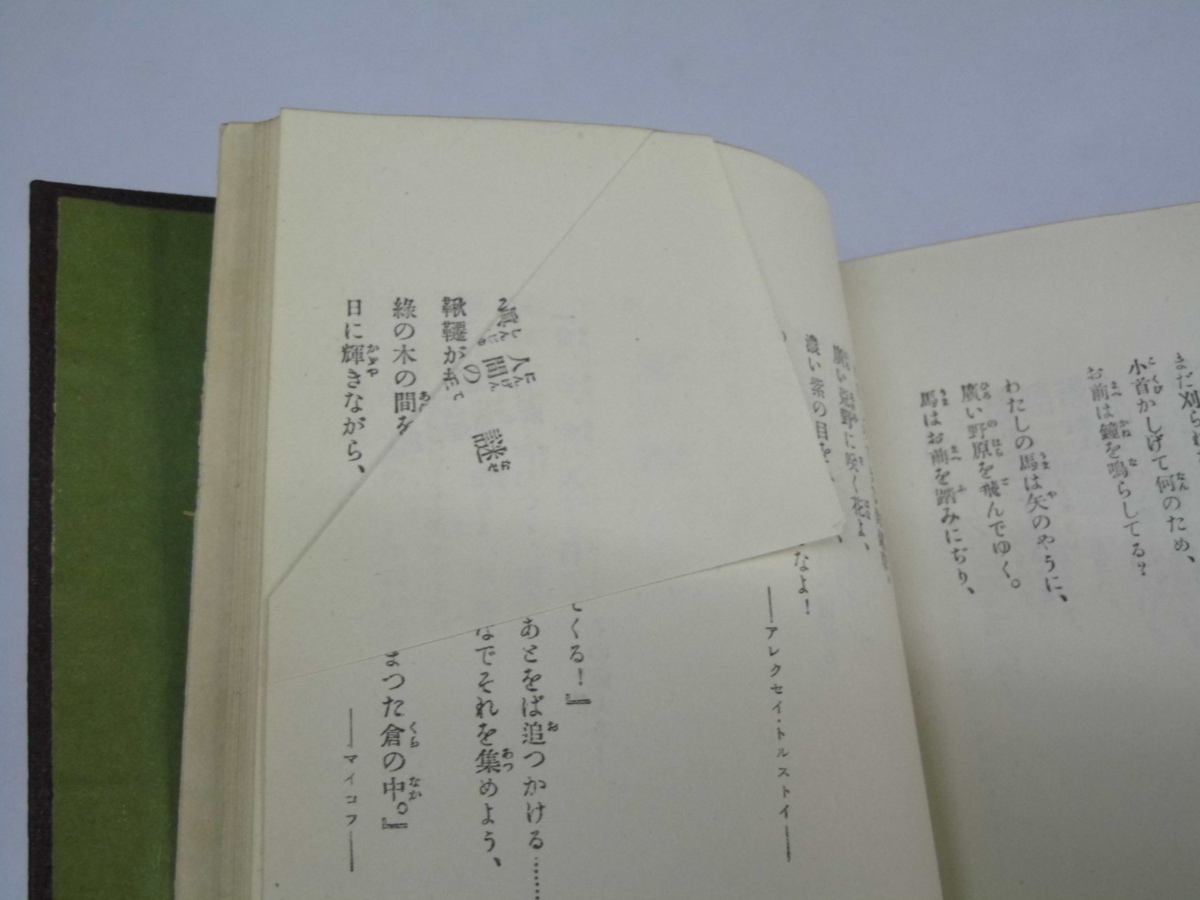 まだ刈ら
小首かしげて何のため、
お前は鐘を鳴らしてる?
わたしの馬は矢のやうに、
廣い野原を飛んでゆく。
馬はお前を踏みにぢり、
野に咲く花よ、
濃い紫の目を
なよ!
――アレクセイ・トルストイ――
てくる!』
あとをば追つかける……
なでそれを集めよう、
まつた倉の中。』
――マイコフ――
人間
の
謎
鞦韆が
綠の木の間を
日に輝きながら、